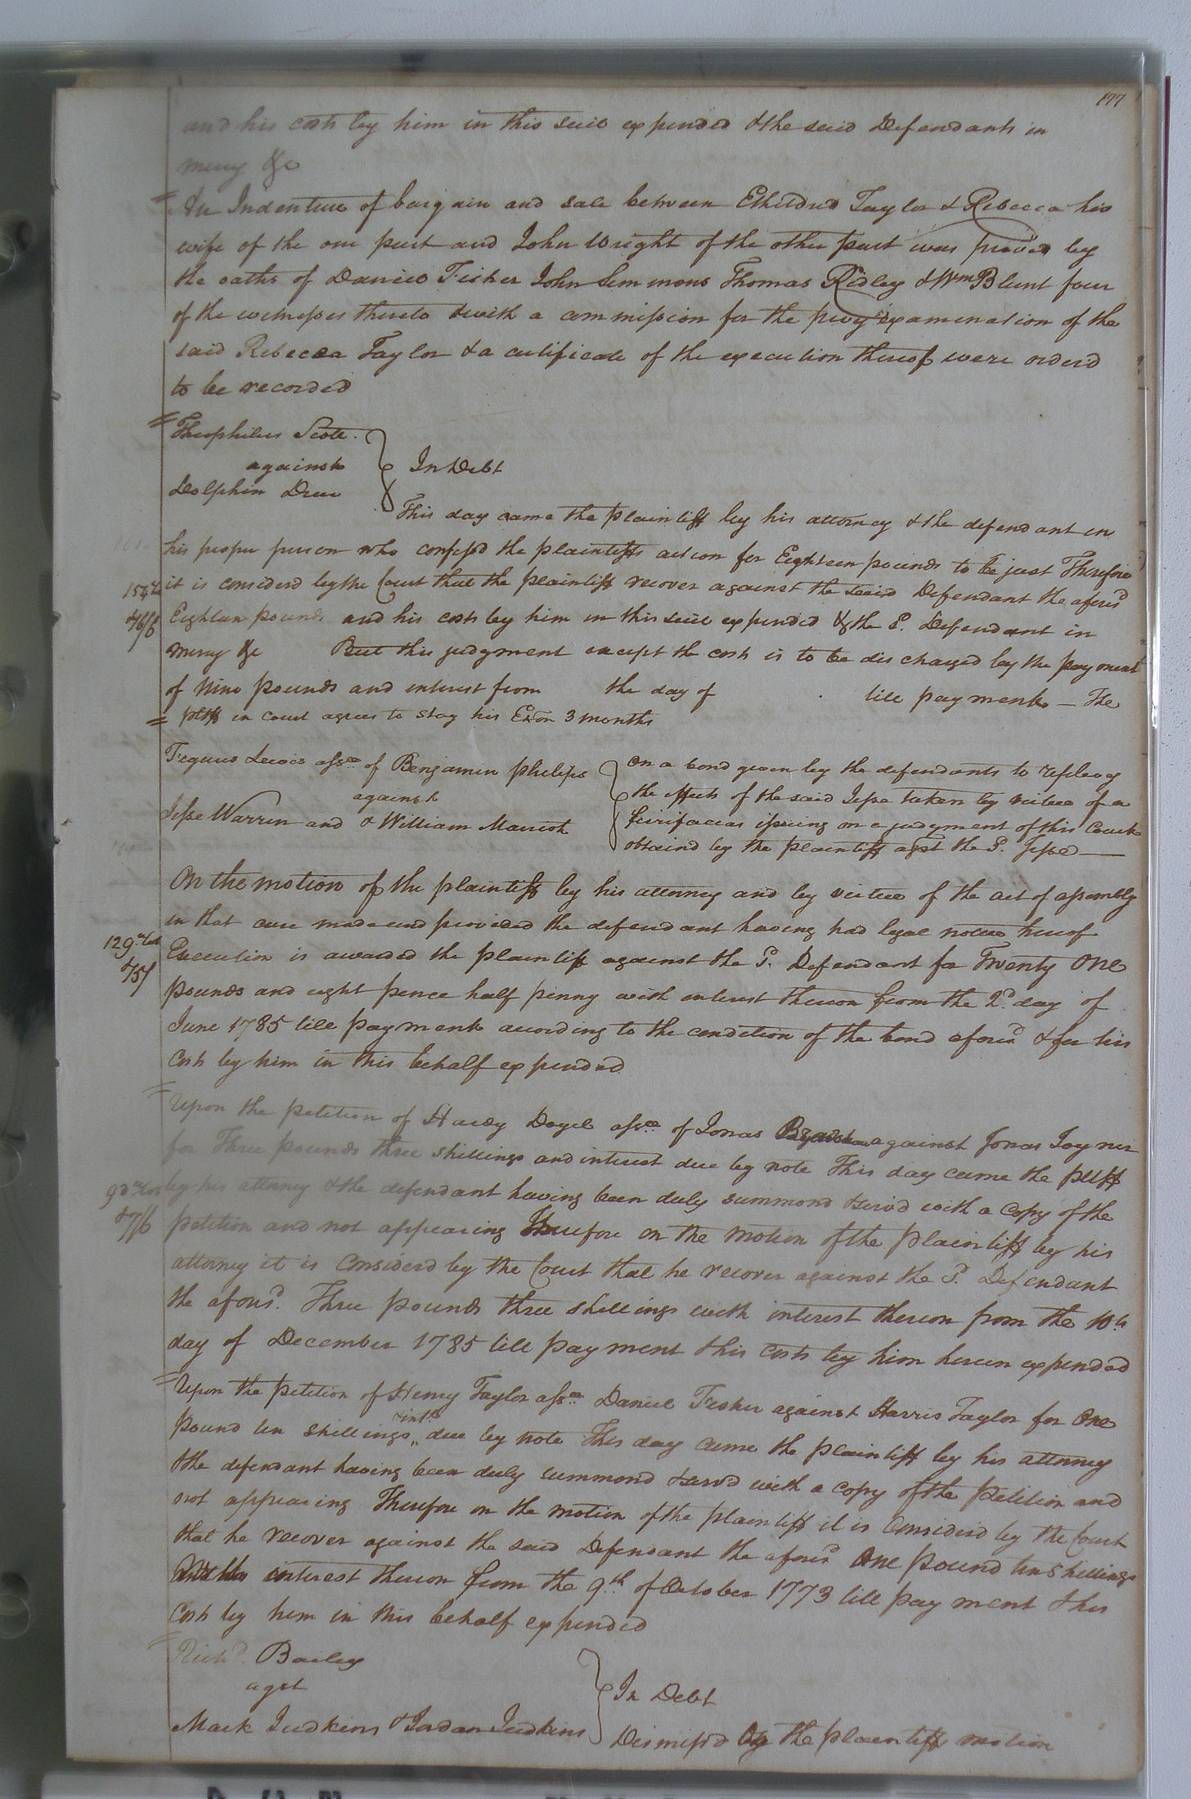 177
and his costs by him in this suit expended & the said Defendants in
mercy &c
An Indenture of bargain and sale between Etheldred Taylor & Rebecca his
wife of the one part and John Wright of the other part was proved by
the oaths of Daniel Fisher John Simmons Thomas Ridley & Wm Blunt four
of the witnesses thereto & with a commission for the privy examination of the
said Rebecca Taylor & a certificate of the execution thereof were orderd
to be recorded
Theophilus Scott
against
Dolphin Drew
In Debt
This day came the plaintiff by his attorney & the defendant in
his proper person who confess'd the plaintiffs action for Eighteen pounds to be just Therefore
it is considerd by the Court that the plaintiff recover against the said Defendant the afores'd
Eighteen pounds and his costs by him in this suit expended & the S. Defendant in
mercy &c But this judgment except the costs is to be discharged by the payment
of Nine pounds and interest from the day of till payment — The
pltff in court agrees to stay his Exon 3 months
Lewis asse of Benjamin Philips
against
Jesse Warren and & William
on a bond given by the defendants to replevy
the effects of the said Jesse taken by virtue of a
fierifacias issuing on a judgment of this Court
obtaind by the plaintiff agst the S. Jesse —
On the motion of the plaintiff by his attorney and by virtue of the act of assembly
in that case made and provided the defendant having had legal notice hereof
Execution is awarded the plaintiff against the S. Defendant for Twenty One
pounds and eight pence half penny with interest thereon from the 2d. day of
June 1785 till payment according to the condition of the bond afores'd & for his
costs by him in this behalf expended
Upon the petition of Hardy Doyel asse of Jonas against Jonas Joyner
for Three pounds three shillings and interest due by note This day came the pltff
by his attorney & the defendant having been duly summond & serv'd with a copy of the
petition and not appearing Therefore on the motion of the plaintiff by his
attorney it is considerd by the Court that he recover against the S. Defendant
the afores'd. Three pounds three shillings with interest thereon from the 10th
day of December 1785 till payment & his costs by him herein expended
Upon the petition of Henry Taylor asse Daniel Fisher against Harris Taylor for One
pound ten shillings & intt due by note This day came the plaintiff by his attorney
& the defendant having been duly summond & serv'd with a copy of the petition and
not appearing Therefore on the motion of the plaintiff it is considerd by the Court
that he recover against the said Defendant the afores'd One pound ten Shillings
interest thereon from the 9th of October 1773 till payment & his
costs by him in this behalf expended
Richd. Bailey
agst
Mark Judkins & Jordan Judkins
In Debt
Dismiss'd by the plaintiffs motion